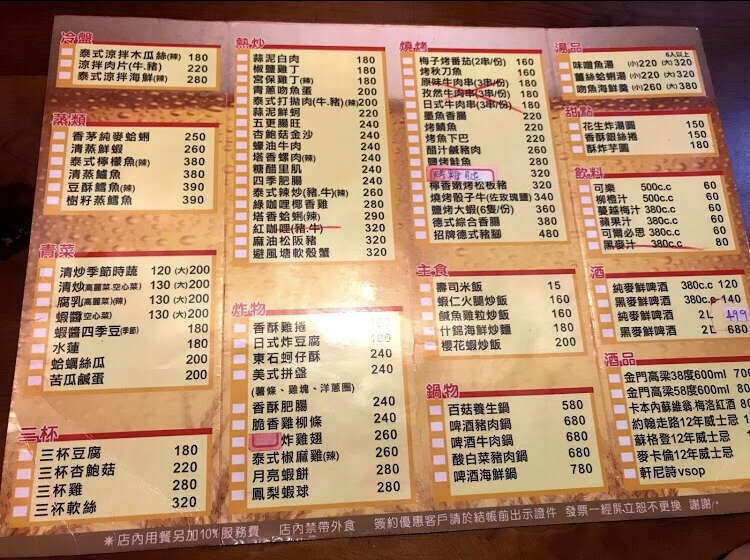 冷盤
泰式涼拌木瓜絲(辣) 180
涼拌肉片(牛.豬) 220
泰式涼拌海鮮(辣) 280
蒸類
香茅純麥蛤蜊 250
清蒸鮮蝦 260
泰式檸檬魚(辣) 380
清蒸鱸魚 380
豆酥鱈魚(辣) 390
樹籽蒸鱈魚 390
青菜
清炒季節時蔬 120 (大)200
清炒(高麗菜.空心菜) 130 (大)200
腐乳(高麗菜)(辣) 130 (大)200
蝦醬(空心菜) 130 (大)200
蝦醬四季豆(季節) 180
水蓮 180
蛤蠣絲瓜 200
苦瓜鹹蛋 200
三杯
三杯豆腐 180
三杯杏鮑菇 220
三杯雞 280
三杯軟絲 320
熱炒
蒜泥白肉 200
椒鹽雞丁 200
宮保雞丁(辣) 200
青蔥吻魚蛋 200
泰式打拋肉(牛.豬)(辣) 200
蒜泥鮮蚵 220
五更腸旺 240
杏鮑菇金沙 240
蠔油牛肉 240
塔香螺肉(辣) 240
糖醋里肌 240
四季肥腸 240
泰式辣炒(豬.牛)(辣) 240
綠咖哩椰香雞 280
塔香蛤蜊(辣) 290
紅咖哩(豬.牛) 320
麻油松阪豬 320
避風塘軟殼蟹 320
炸物
香酥雞捲 180
日式炸豆腐 180
東石蚵仔酥 240
美式拼盤 240
(薯條、雞塊、洋蔥圈)
香酥肥腸 240
脆香雞柳條 240
炸雞翅 260
泰式椒麻雞(辣) 260
月亮蝦餅 280
鳳梨蝦球 280
燒烤
梅子烤番茄(2串/份) 160
烤秋刀魚 160
原味牛肉串(3串/份) 180
孜然牛肉串(3串/份) 180
日式牛肉串(3串/份) 180
墨魚香腸 200
烤鯖魚 220
烤魚下巴 220
醋汁鹹豬肉 260
鹽烤鮭魚 280
320
檸香嫩烤松板豬 320
燒烤骰子牛(佐玫瑰鹽) 340
鹽烤大蝦(6隻/份) 360
德式綜合香腸 380
招牌德式豬腳 480
主食
壽司米飯 15
蝦仁火腿炒飯 160
鹹魚雞粒炒飯 160
什錦海鮮炒麵 180
櫻花蝦炒飯 200
鍋物
百菇養生鍋 580
啤酒豬肉鍋 680
啤酒牛肉鍋 680
酸白菜豬肉鍋 680
啤酒海鮮鍋 780
湯品
6人以上
味噌魚湯 (小)220 (大)320
薑絲蛤蜊湯 (小)220 (大)320
吻魚海鮮羹 (小)260 (大)380
甜點
花生炸湯圓 150
香酥銀絲捲 150
酥炸芋圓 180
飲料
可樂 500c.c 60
柳橙汁 500c.c 60
蔓越梅汁 380c.c 60
蘋果汁 380c.c 60
可爾必思 380c.c 60
黑麥汁 380c.c 80
酒
純麥鮮啤酒 380c.c 120
黑麥鮮啤酒 380c.c 140
純麥鮮啤酒 2L 499
黑麥鮮啤酒 2L 680
酒品
金門高梁38度600ml
金門高梁58度600ml
卡本內蘇維翁.梅洛紅酒
約翰走路12年威士忌
蘇格登12年威士忌
麥卡倫12年威士忌
軒尼詩vsop
※店內用餐另加10%服務費 店內禁帶外食 簽約優惠客戶請於結帳前出示證件 發票一經開立恕不更換 謝謝